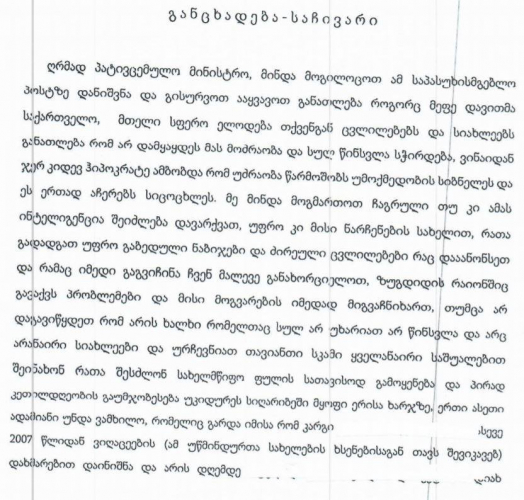 განცხადება-საჩივარი
ღრმად პატივცემულო მინისტრო, მინდა მოგილოცოთ ამ საპასუხისმგებლო
პოსტზე დანიშვნა და გისურვოთ ააყვავოთ განათლება როგორც მეფე დავითმა
საქართველო, მთელი სფერო ელოდება თქვენგან ცვლილებებს და სიახლეებს
განათლება რომ არ დამყაყდეს მას მოძრაობა და სულ წინსვლა სჭირდება, ვინაიდან
ჯერ კიდევ ჰიპოკრატე ამბობდა რომ უძრაობა წარმოშობს უმოქმედობის სიბნელეს და
ეს ერთად აჩერებს სიცოცხლეს. მე მინდა მოგმართოთ ჩაგრული თუ კი ამას
ინტელიგენცია შეიძლება დავარქვათ, უფრო კი მისი ნარჩენების სახელით, რათა
გადადგათ უფრო გაბედული ნაბიჯები და ძირეული ცვლილებები რაც დააანონსეთ
და რამაც იმედი გაგვიჩინა ჩვენ მალევე განახორციელოთ, ზუგდიდის რაიონშიც
გვაქვს პრობლემები და მისი მოგვარების იმედად მიგვაჩნიხართ, თუმცა არ
დაგავიწყდეთ რომ არის ხალხი რომელთაც სულ არ უხარიათ არ წინსვლა და არც
არანაირი სიახლეები და ურჩევნიათ თავიანთი სკამი ყველანაირი საშუალებით
შეინახონ რათა შესძლონ სახელმწიფო ფულის სათავისოდ გამოყენება და პირად
კეთილდღეობის გაუმჯობესება უკიდურეს სიღარიბეში მყოფი ერისა ხარჯზე, ერთი ასეთი
ადამიანი უნდა ვამხილო, რომელიც გარდა იმისა რომ კარგი ასევე
2007 წლიდან ვიღაცეების (ამ უწმინდურთა სახელების ხსენებისაგან თავს შევიკავებ)
დახმარებით დაინიშნა და არის დღემდე